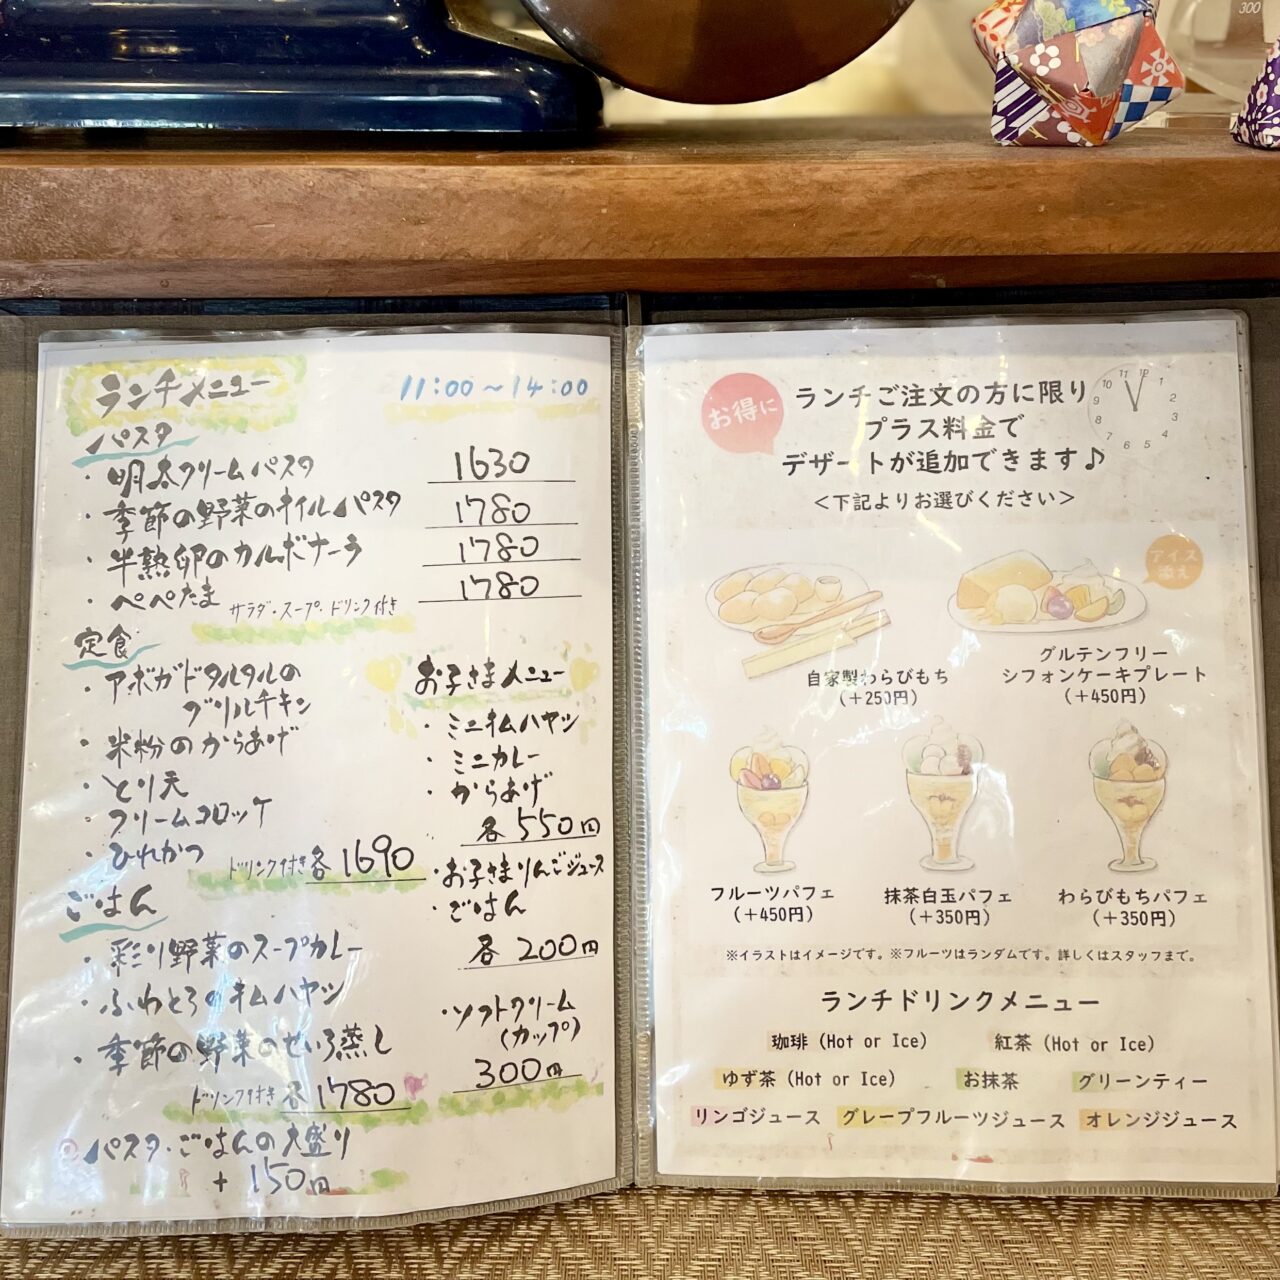 300
ランチメニュー
11:00～14:00
パスタ
・明太クリームパスタ 1630
・季節の野菜のオイルパスタ 1780
・半熟卵のカルボナーラ 1780
・ペペたま 1780
サラダ・スープ・ドリンク付き
定食
・アボガドタルタルの
グリルチキン
・米粉のからあげ
・とり天
・クリームコロッケ
・ひれかつ
ドリンク付き 各1690
ごはん
・彩り野菜のスープカレー
・ふわとろオムハヤシ
・季節の野菜のせいろ蒸し
ドリンク付き 各1780
パスタ・ごはんの大盛り
+150円
お子さまメニュー
・ミニオムハヤシ
・ミニカレー
・からあげ
各550円
・お子さまりんごジュース
・ごはん
各200円
・ソフトクリーム
(カップ)
300円
お得に
ランチご注文の方に限り
プラス料金で
デザートが追加できます♪
＜下記よりお選びください＞
12
1
2
3
4
5
6
7
8
9
10
11
アイス
添え
自家製わらびもち
(+250円)
グルテンフリー
シフォンケーキプレート
(+450円)
フルーツパフェ
(+450円)
抹茶白玉パフェ
(+350円)
わらびもちパフェ
(+350円)
※イラストはイメージです。※フルーツはランダムです。詳しくはスタッフまで。
ランチドリンクメニュー
珈琲 (Hot or Ice) 紅茶 (Hot or Ice)
ゆず茶 (Hot or Ice) お抹茶 グリーンティー
リンゴジュース グレープフルーツジュース オレンジジュース